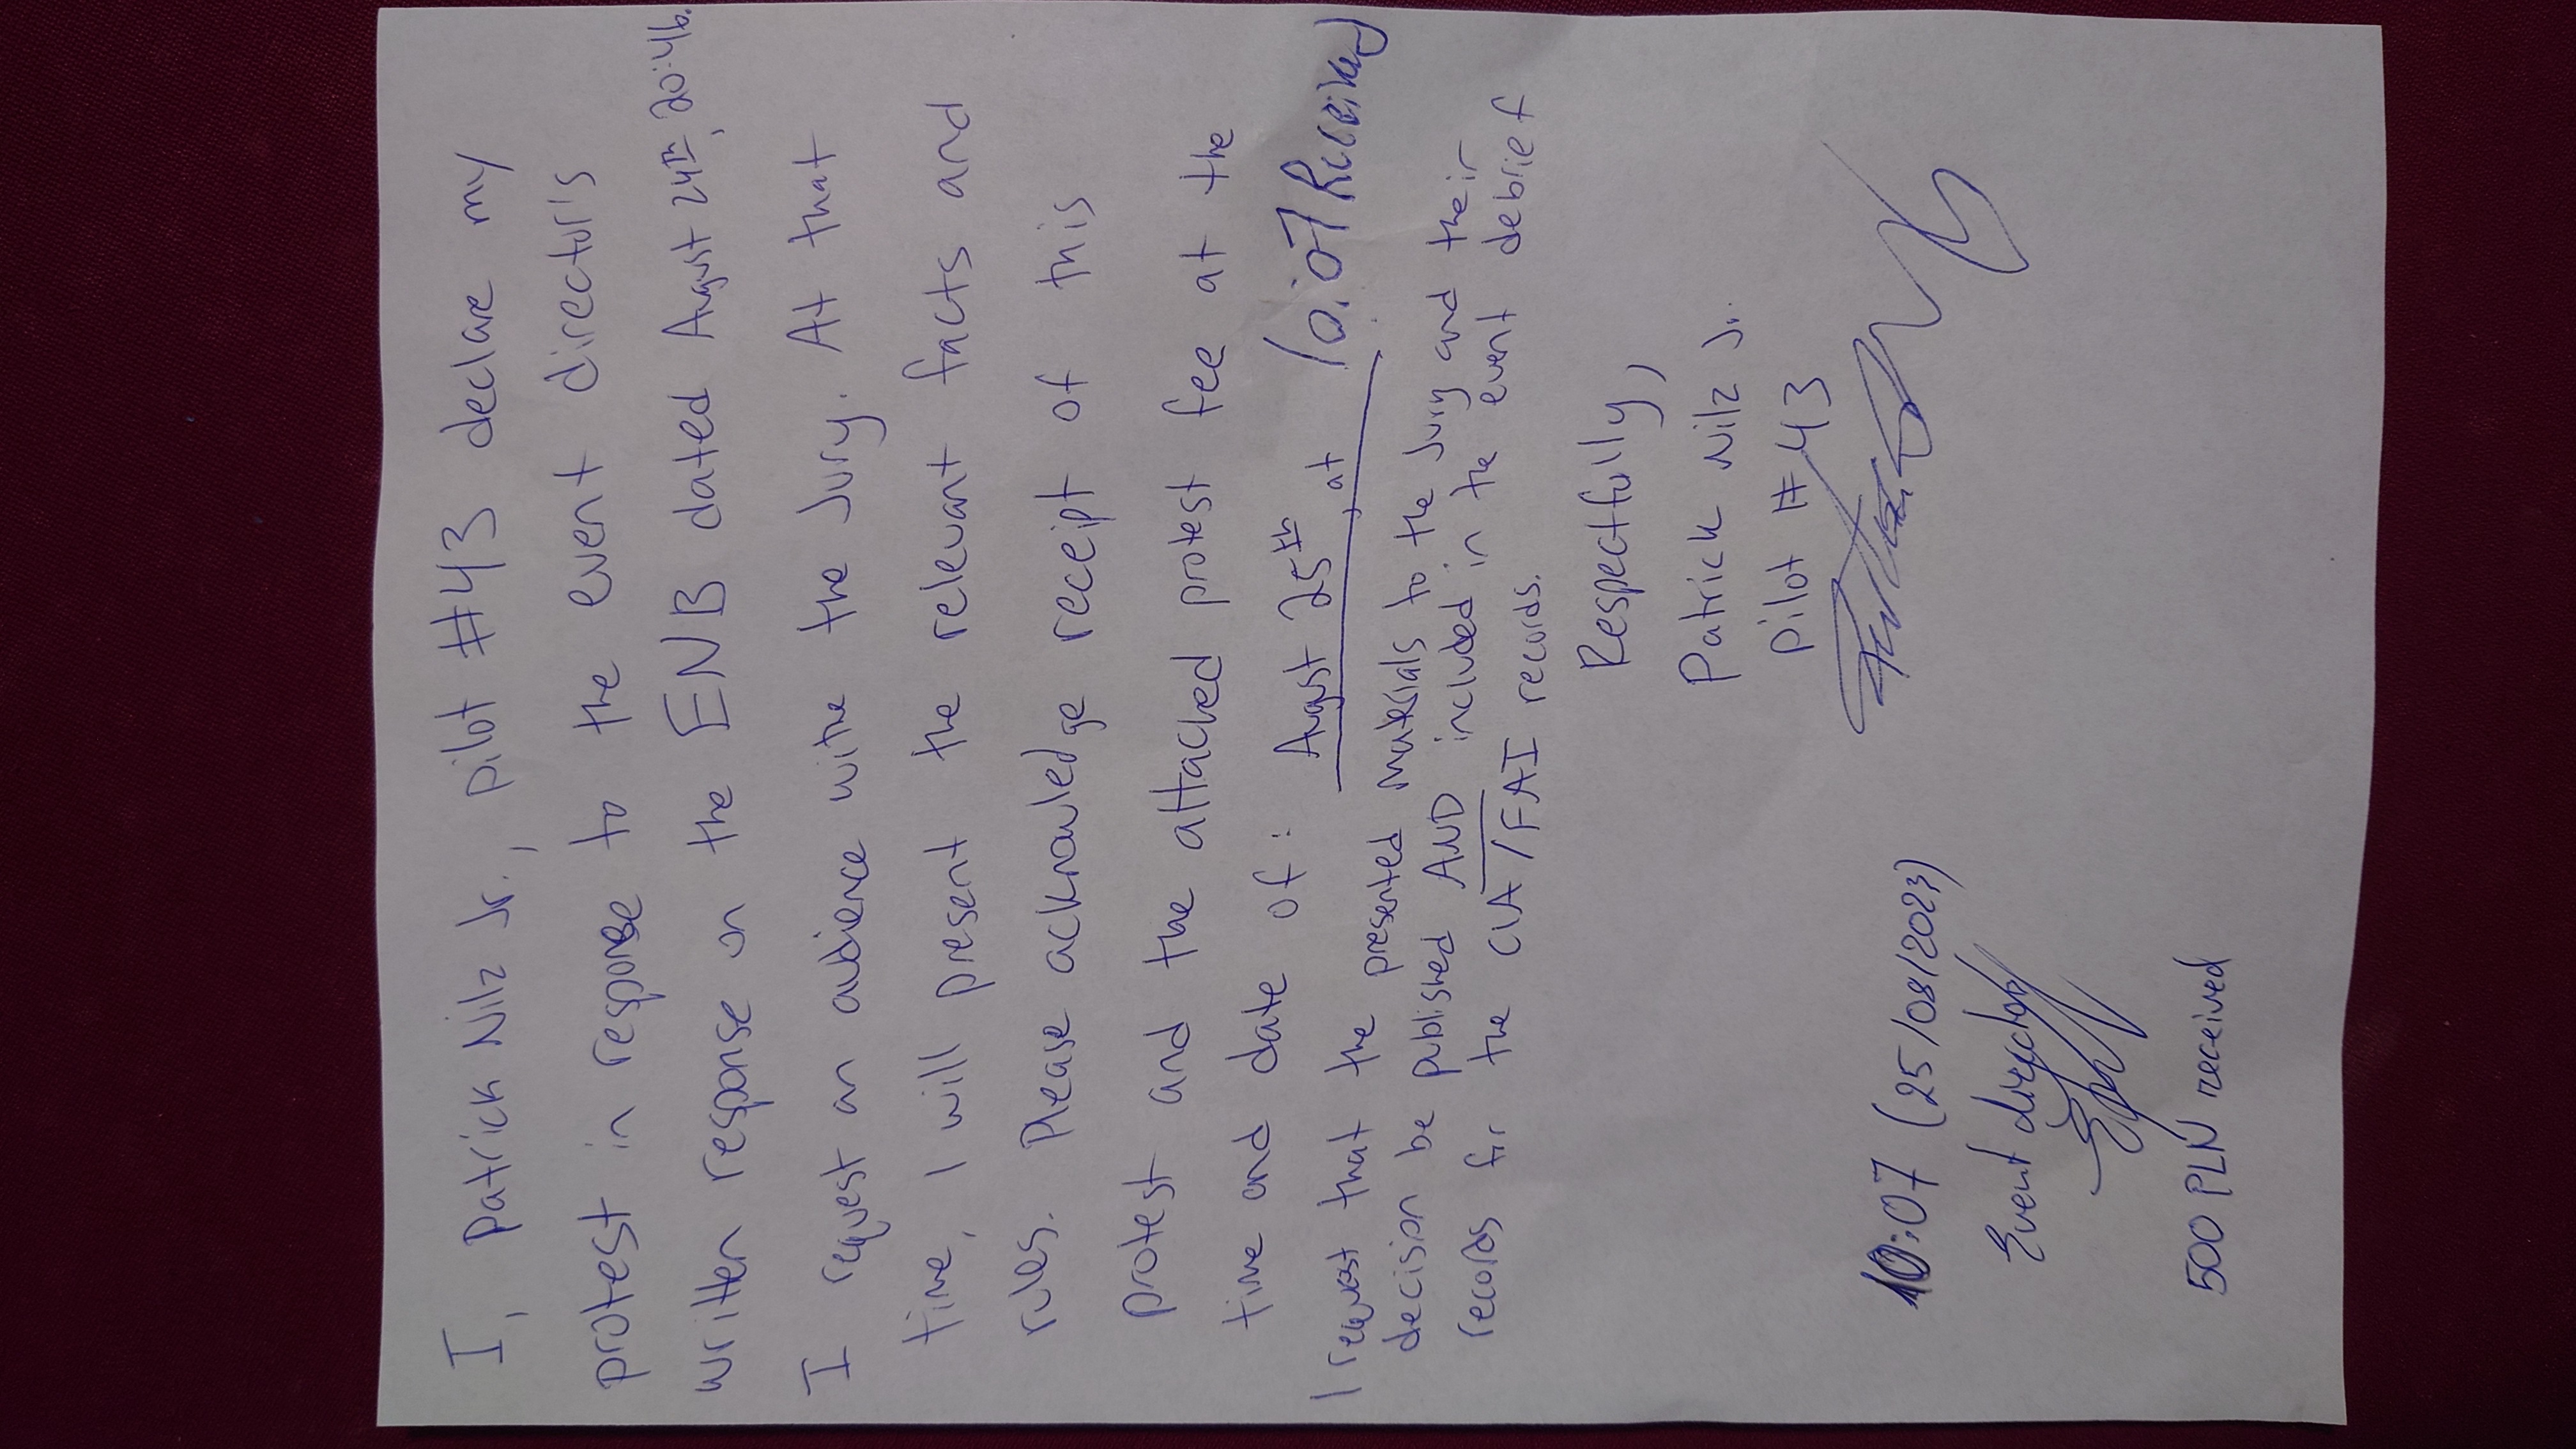 I, Patrick Nilz Jr., pilot #43 declare my
protest in response to the event director's
written response on the ENB dated August 24th, 20:46.
I request an audience with the Jury. At that
time, I will present the relevant facts and
rules. Please acknowledge receipt of this
protest and the attached protest fee at the
time and date of: August 25th, at 10:07 Received
I request that the presented materials to the Jury and their
decision be published AND included in the event debrief
records for the CIA/FAI records.
Respectfully,
Patrick Nilz Jr.
Pilot #43
10:07 (25/08/2023)
Event director
500 PLN received